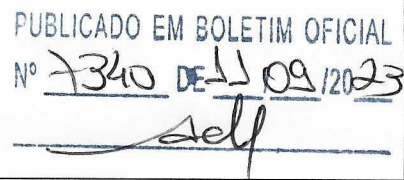 PUBLICADO EM BOLETIM OFICIAL
Nº 7340 DE 11 09 /2023